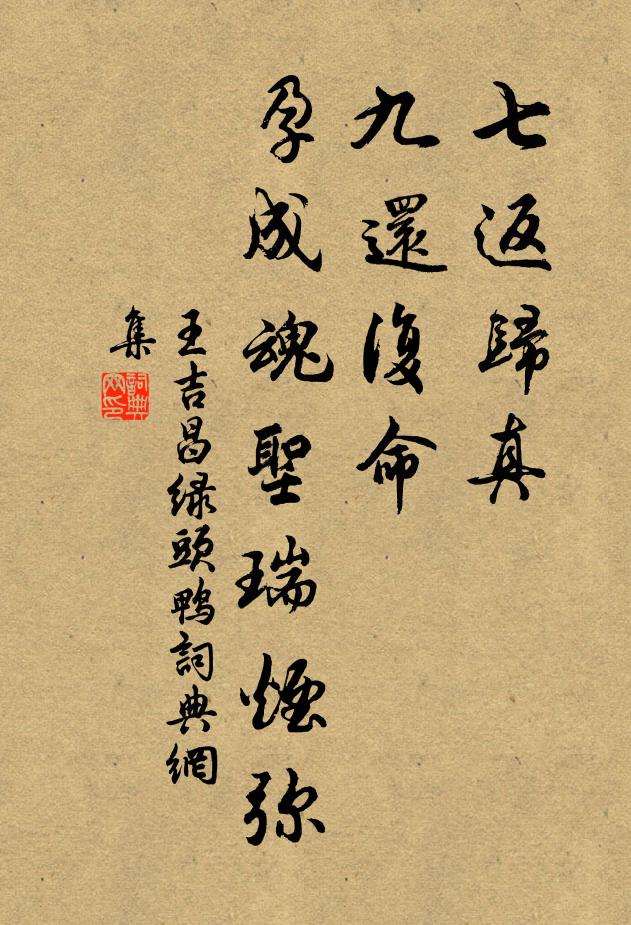 七返歸真
九還復命
孕成魂聖瑞煙弥
王吉昌绿頭鴨詞典網
集
詞典网印